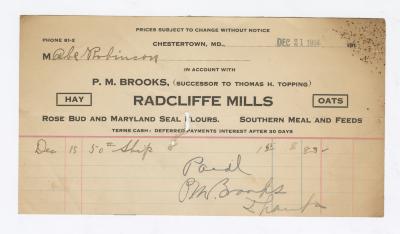 PRICES SUBJECT TO CHANGE WITHOUT NOTICE
PHONE 81-2
CHESTERTOWN, MD., DEC 21 191
M Abe Robinson
IN ACCOUNT WITH
P. M. BROOKS, (SUCCESSOR TO THOMAS H. TOPPING)
HAY RADCLIFFE MILLS OATS
ROSE BUD AND MARYLAND SEAL FLOURS. SOUTHERN MEAL AND FEEDS
TERMS CASH: DEFERRED PAYMENTS INTEREST AFTER 30 DAYS
Dec 15 50 Ship
Paid
P.M. Brooks
Thanks